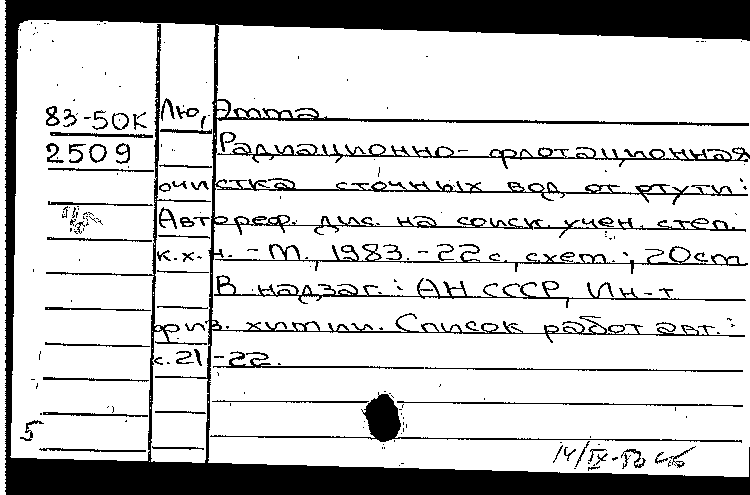 83-50К Лю, Этта.
2509 Радиационно-флотационная
очистка сточных вод от ртути:
Автореф. дис. на соиск. учен. степ.
к.х.н. - М., 1983. - 22 с., схем.; 20 см
В надзаг.: АН СССР, Ин-т
физ. химии. Список работ авт.:
с. 21-22.
5
14/IX-83